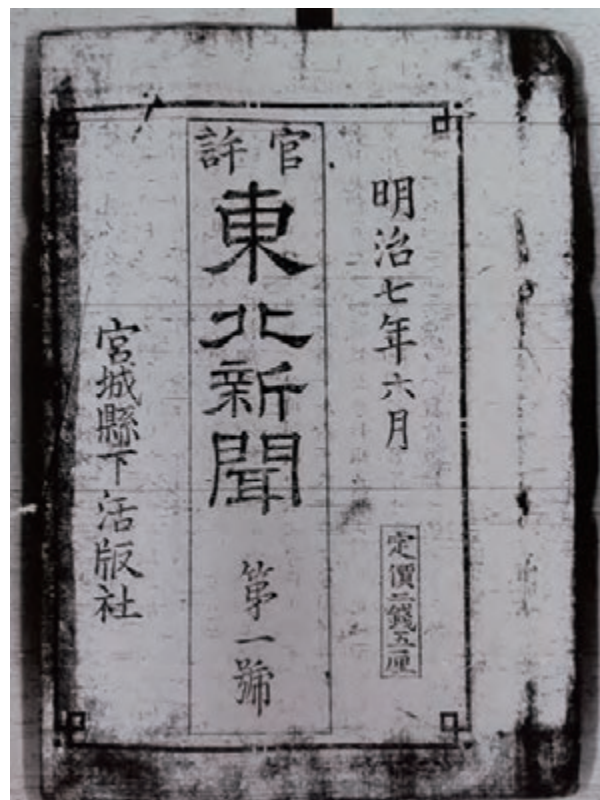 明治七年六月
定價二錢五厘
官許
東北新聞
第一號
宮城縣下活版社